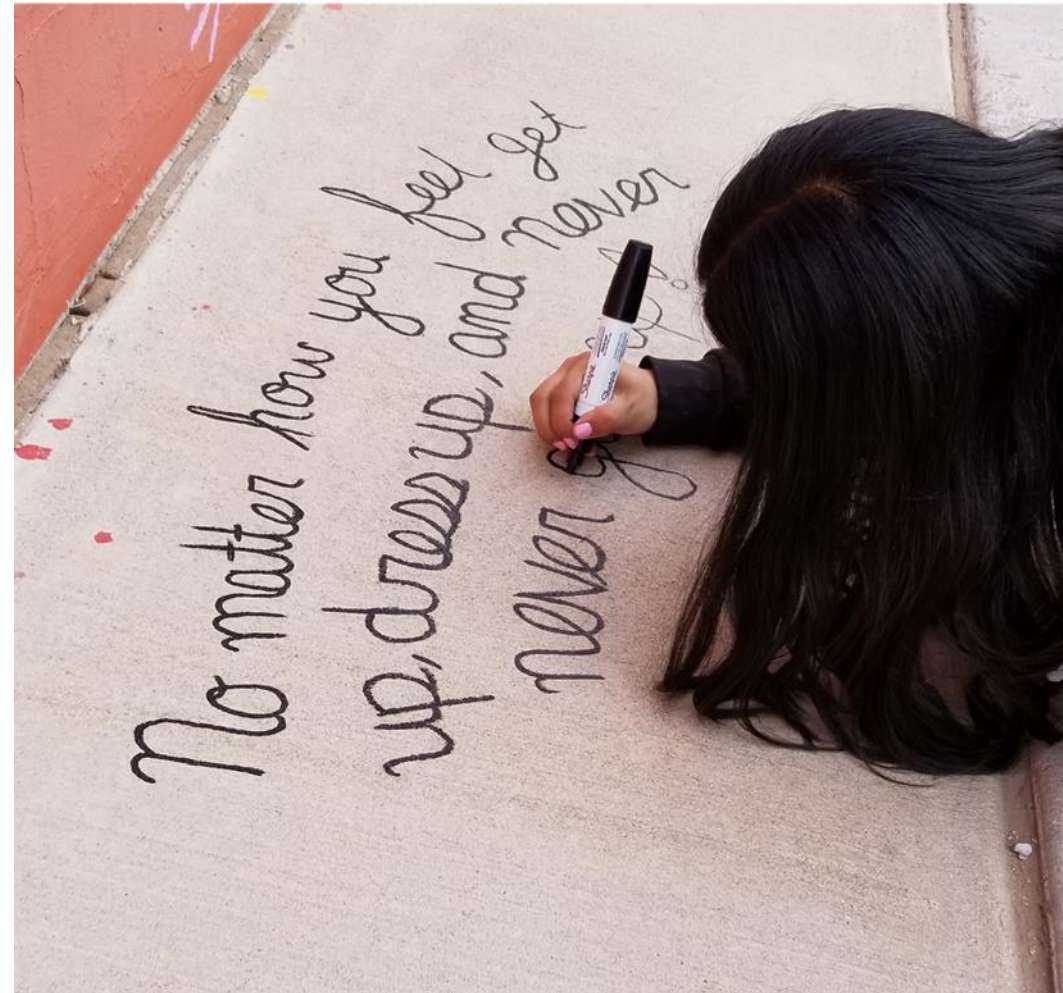 No matter how you feel get
up, dress up, and never
never
Sharpie